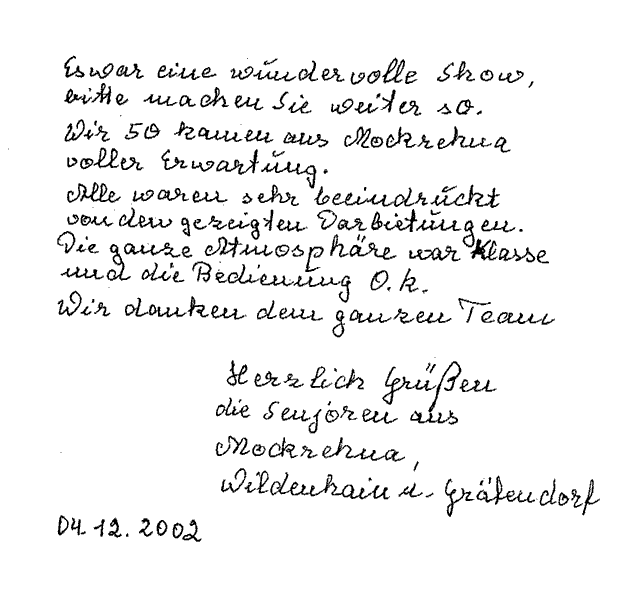 Es war eine wundervolle Show,
bitte machen Sie weiter so.
Wir 50 kamen aus Mockrehna
voller Erwartung.
Alle waren sehr beeindruckt
von den gezeigten Darbietungen.
Die ganze Atmosphäre war Klasse
und die Bedienung O.k.
Wir danken dem ganzen Team
Herzlich Grüßen
die Senjoren aus
Mockrehna,
Wildenhain u. Gräfendorf
04.12.2002